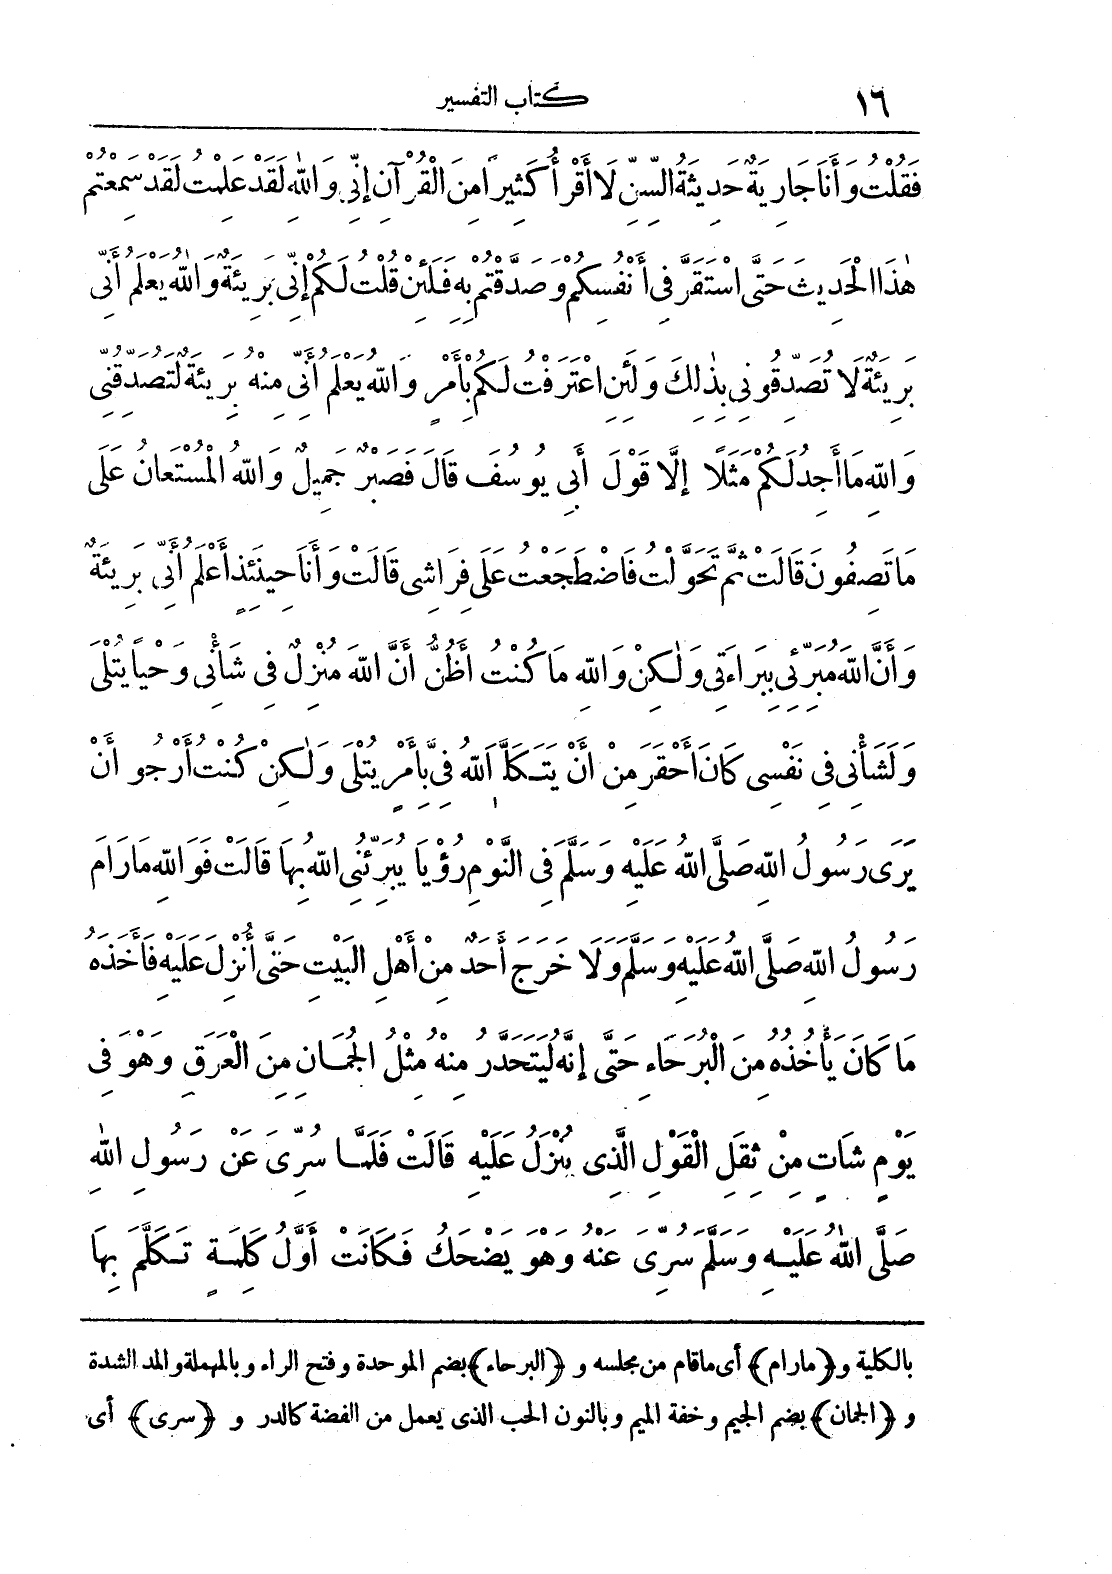 ١٦ كتاب التفسير
فَقُلْتُ وَأَنَا جَارِيَةٌ حَدِيثَةُ السِّنِّ لَا أَقْرَأُ كَثِيرًا مِنَ الْقُرْآنِ إِنِّي وَاللهِ لَقَدْ عَلِمْتُ لَقَدْ سَمِعْتُمْ
هٰذَا الْحَدِيثَ حَتَّى اسْتَقَرَّ فِي أَنْفُسِكُمْ وَصَدَّقْتُمْ بِهِ فَلَئِنْ قُلْتُ لَكُمْ إِنِّي بَرِيئَةٌ وَاللهُ يَعْلَمُ أَنِّي
بَرِيئَةٌ لَا تُصَدِّقُونِي بِذٰلِكَ وَلَئِنِ اعْتَرَفْتُ لَكُمْ بِأَمْرٍ وَاللهُ يَعْلَمُ أَنِّي مِنْهُ بَرِيئَةٌ لَتُصَدِّقُنِّي
وَاللهِ مَا أَجِدُ لَكُمْ مَثَلًا إِلَّا قَوْلَ أَبِي يُوسُفَ قَالَ فَصَبْرٌ جَمِيلٌ وَاللهُ الْمُسْتَعَانُ عَلَى
مَا تَصِفُونَ قَالَتْ ثُمَّ تَحَوَّلْتُ فَاضْطَجَعْتُ عَلَى فِرَاشِي قَالَتْ وَأَنَا حِينَئِذٍ أَعْلَمُ أَنِّي بَرِيئَةٌ
وَأَنَّ اللهَ مُبَرِّئِي بِبَرَاءَتِي وَلٰكِنْ وَاللهِ مَا كُنْتُ أَظُنُّ أَنَّ اللهَ مُنْزِلٌ فِي شَأْنِي وَحْيًا يُتْلَى
وَلَشَأْنِي فِي نَفْسِي كَانَ أَحْقَرَ مِنْ أَنْ يَتَكَلَّمَ اللهُ فِيَّ بِأَمْرٍ يُتْلَى وَلٰكِنْ كُنْتُ أَرْجُو أَنْ
يَرَى رَسُولُ اللهِ صَلَّى اللهُ عَلَيْهِ وَسَلَّمَ فِي النَّوْمِ رُؤْيَا يُبَرِّئُنِي اللهُ بِهَا قَالَتْ فَوَ اللهِ مَا رَامَ
رَسُولُ اللهِ صَلَّى اللهُ عَلَيْهِ وَسَلَّمَ وَلَا خَرَجَ أَحَدٌ مِنْ أَهْلِ الْبَيْتِ حَتَّى أُنْزِلَ عَلَيْهِ فَأَخَذَهُ
مَا كَانَ يَأْخُذُهُ مِنَ الْبُرَحَاءِ حَتَّى إِنَّهُ لَيَتَحَدَّرُ مِنْهُ مِثْلُ الْجُمَانِ مِنَ الْعَرَقِ وَهْوَ فِي
يَوْمٍ شَاتٍ مِنْ ثِقَلِ الْقَوْلِ الَّذِي يُنْزَلُ عَلَيْهِ قَالَتْ فَلَمَّا سُرِّيَ عَنْ رَسُولِ اللهِ
صَلَّى اللهُ عَلَيْهِ وَسَلَّمَ سُرِّيَ عَنْهُ وَهْوَ يَضْحَكُ فَكَانَتْ أَوَّلُ كَلِمَةٍ تَكَلَّمَ بِهَا
بالكلية و﴿مارام﴾ أى ماقام من مجلسه و ﴿البرحاء﴾ بضم الموحدة وفتح الراء وبالمهملة والمد الشدة
و ﴿الجمان﴾ بضم الجيم وخفة الميم وبالنون الحب الذى يعمل من الفضة كالدر و ﴿سرى﴾ أى